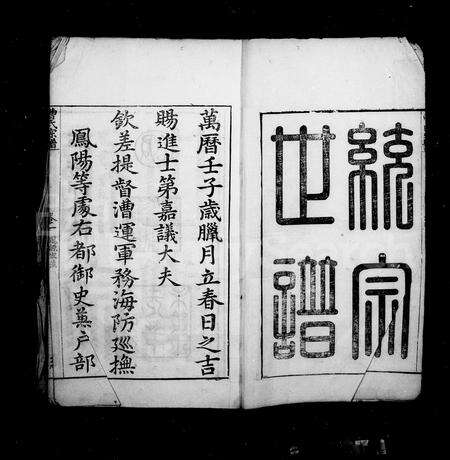 統宗
世譜
萬曆壬子歲臘月立春日之吉
賜進士第嘉議大夫
欽差提督漕運軍務海防廵撫
鳳陽等處右都御史兼户部